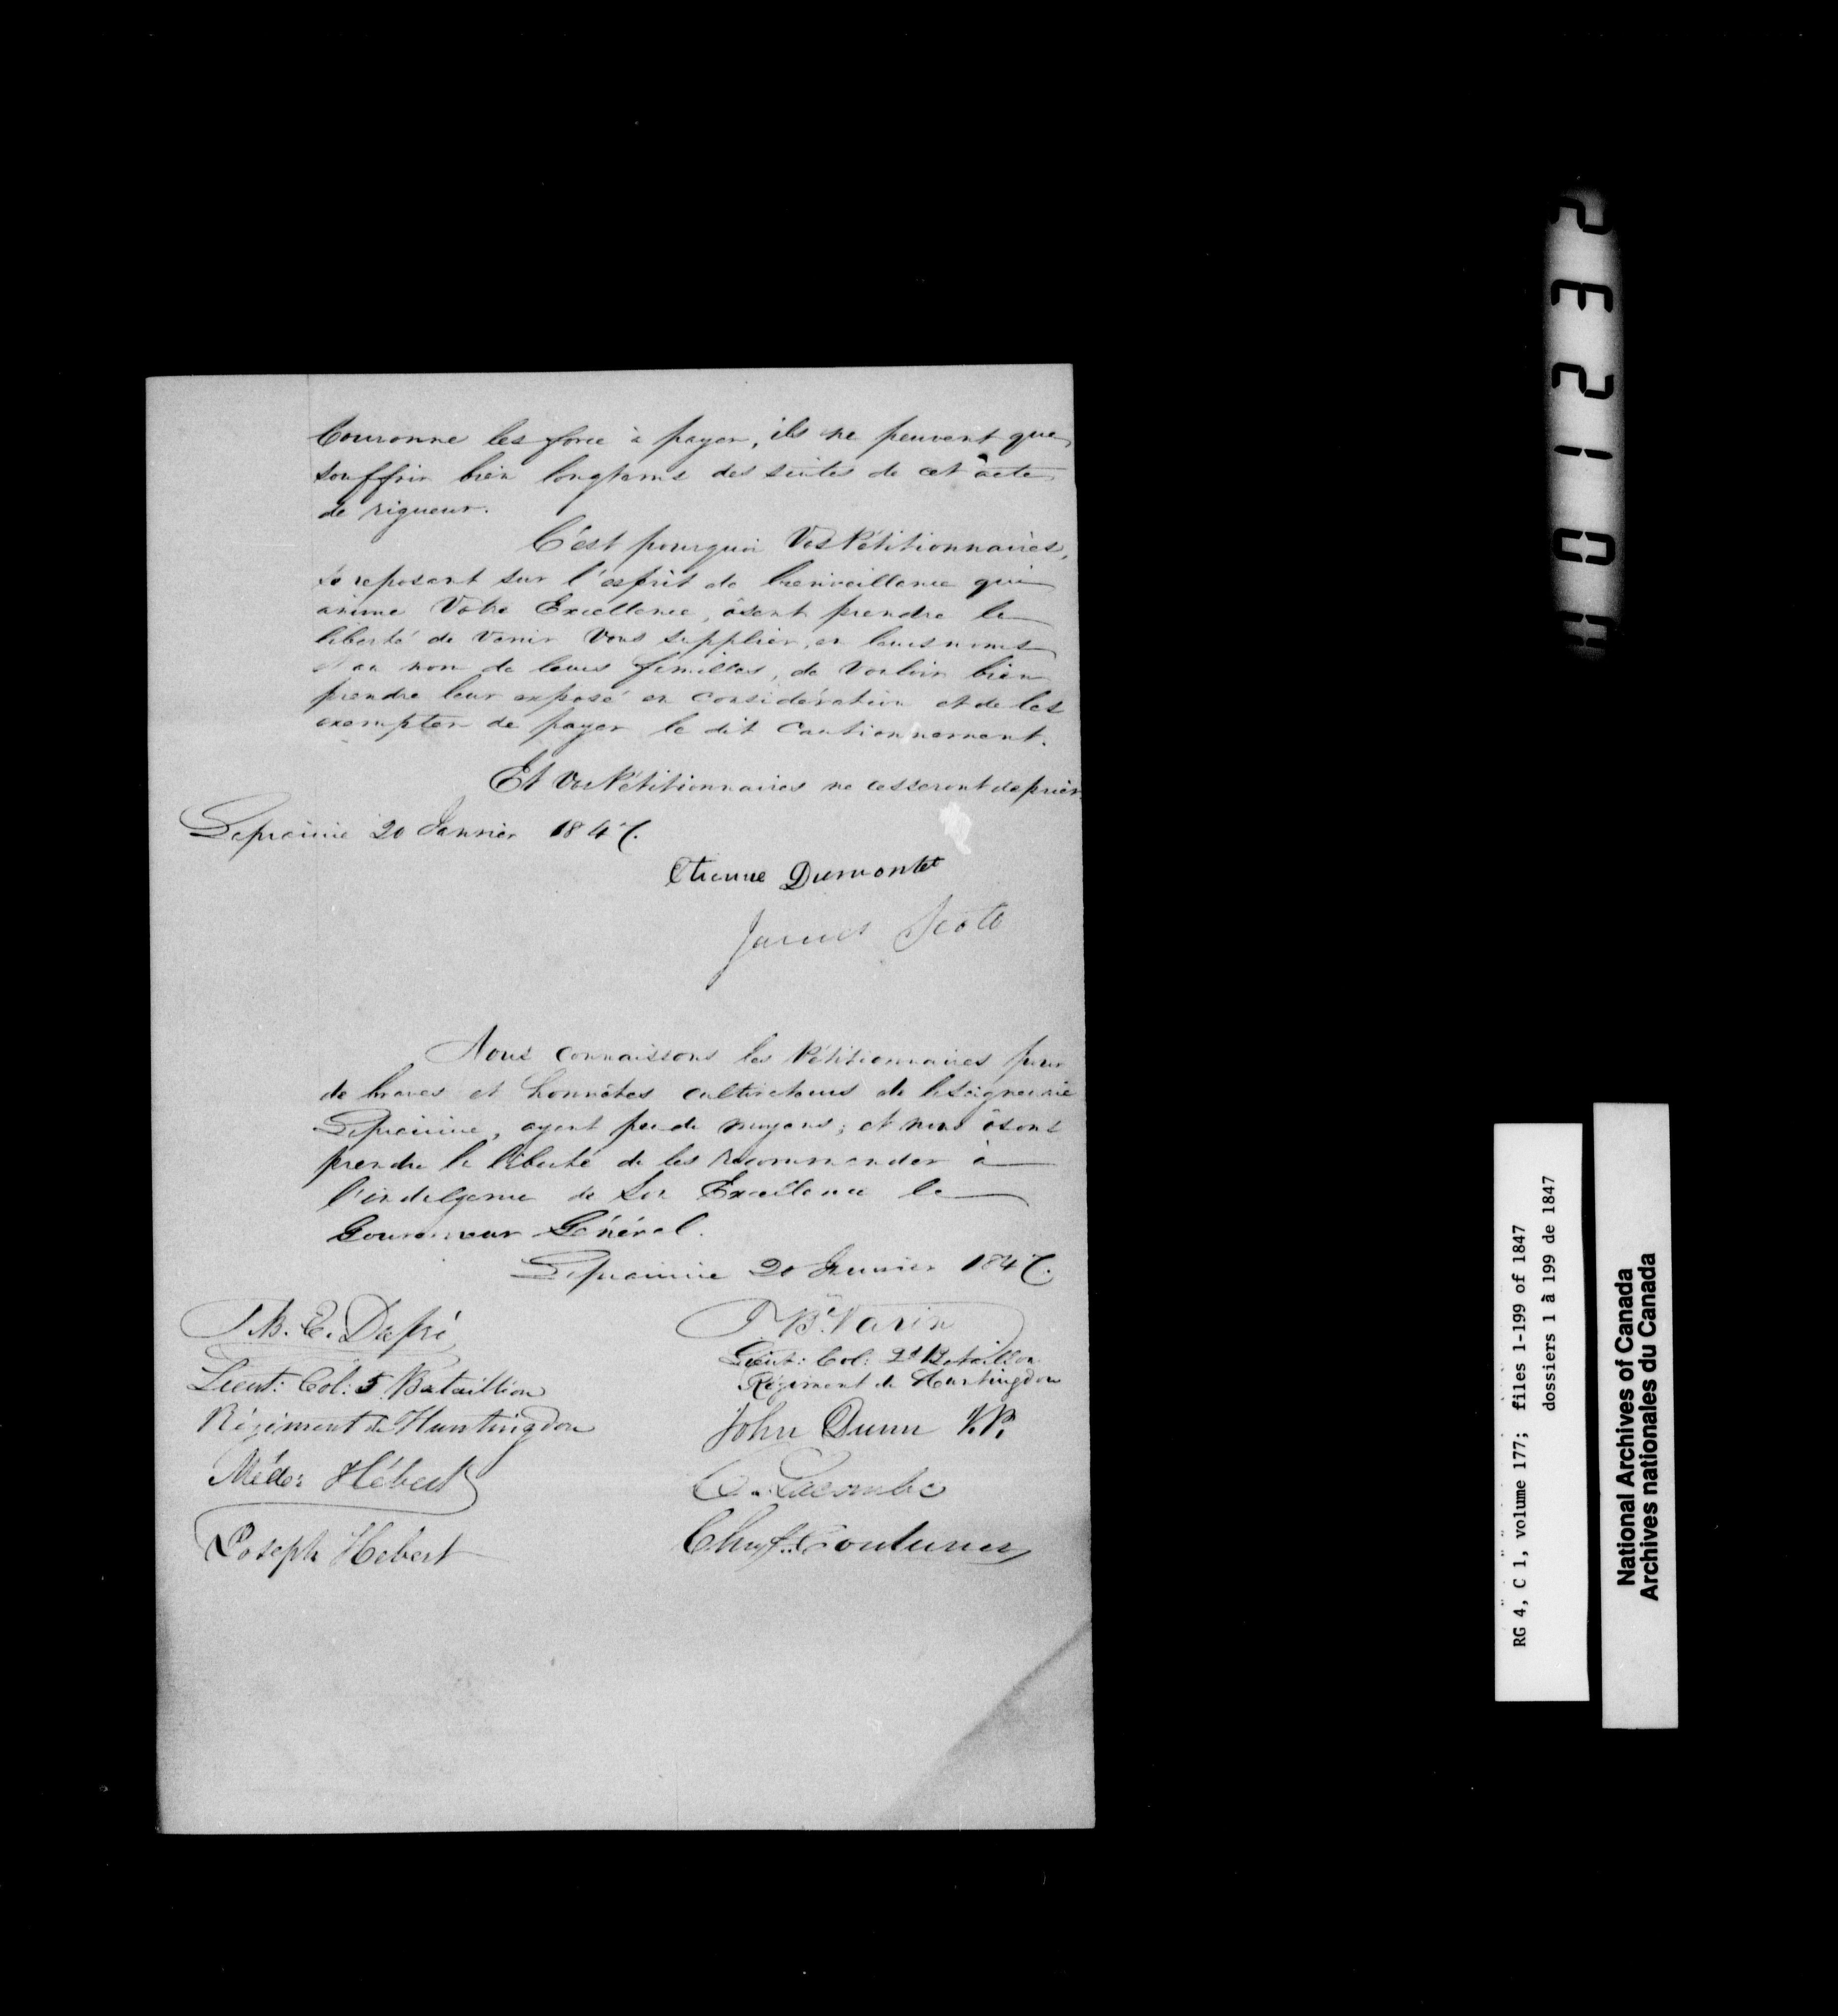 Couronne les force à payer, ils ne peuvent que
souffrir bien longtems des suites de cet acte
de rigueur.
C'est pourquoi Vos Pétitionnaires,
se reposant sur l'esprit de bienveillance qui
anime Votre Excellence, ôsent prendre la
liberté de venir Vous supplier, en leurs noms
et au nom de leurs familles, de Vouloir bien
prendre leur exposé en considération et de les
exempter de payer le dit Cautionnement.
Et Vos Pétitionnaires ne cesseront de prier
Laprairie 20 Janvier 1847.
Etienne Dumontet
James Scott
Nous connaissons les Pétitionnaires pour
de braves et honnêtes cultivateurs de la Seigneurie
Laprairie, ayant peu de moyens; et nous ôsons
prendre la liberté de les recommander à
l'indulgence de Son Excellence le
Gouverneur Général.
Laprairie 20 Janvier 1847.
J. B. E. Dupré
Lieut: Col: 5 Bataillion
Régiment de Huntingdon
Médor Hébert
Joseph Hebert
J Bte Varin
Lieut: Col: 2d Bataillon
Régiment de Huntingdon
John Dunn J.P.
Lacombe
Couturier
RG 4, C 1, volume 177; files 1-199 of 1847
dossiers 1 à 199 de 1847
National Archives of Canada
Archives nationales du Canada